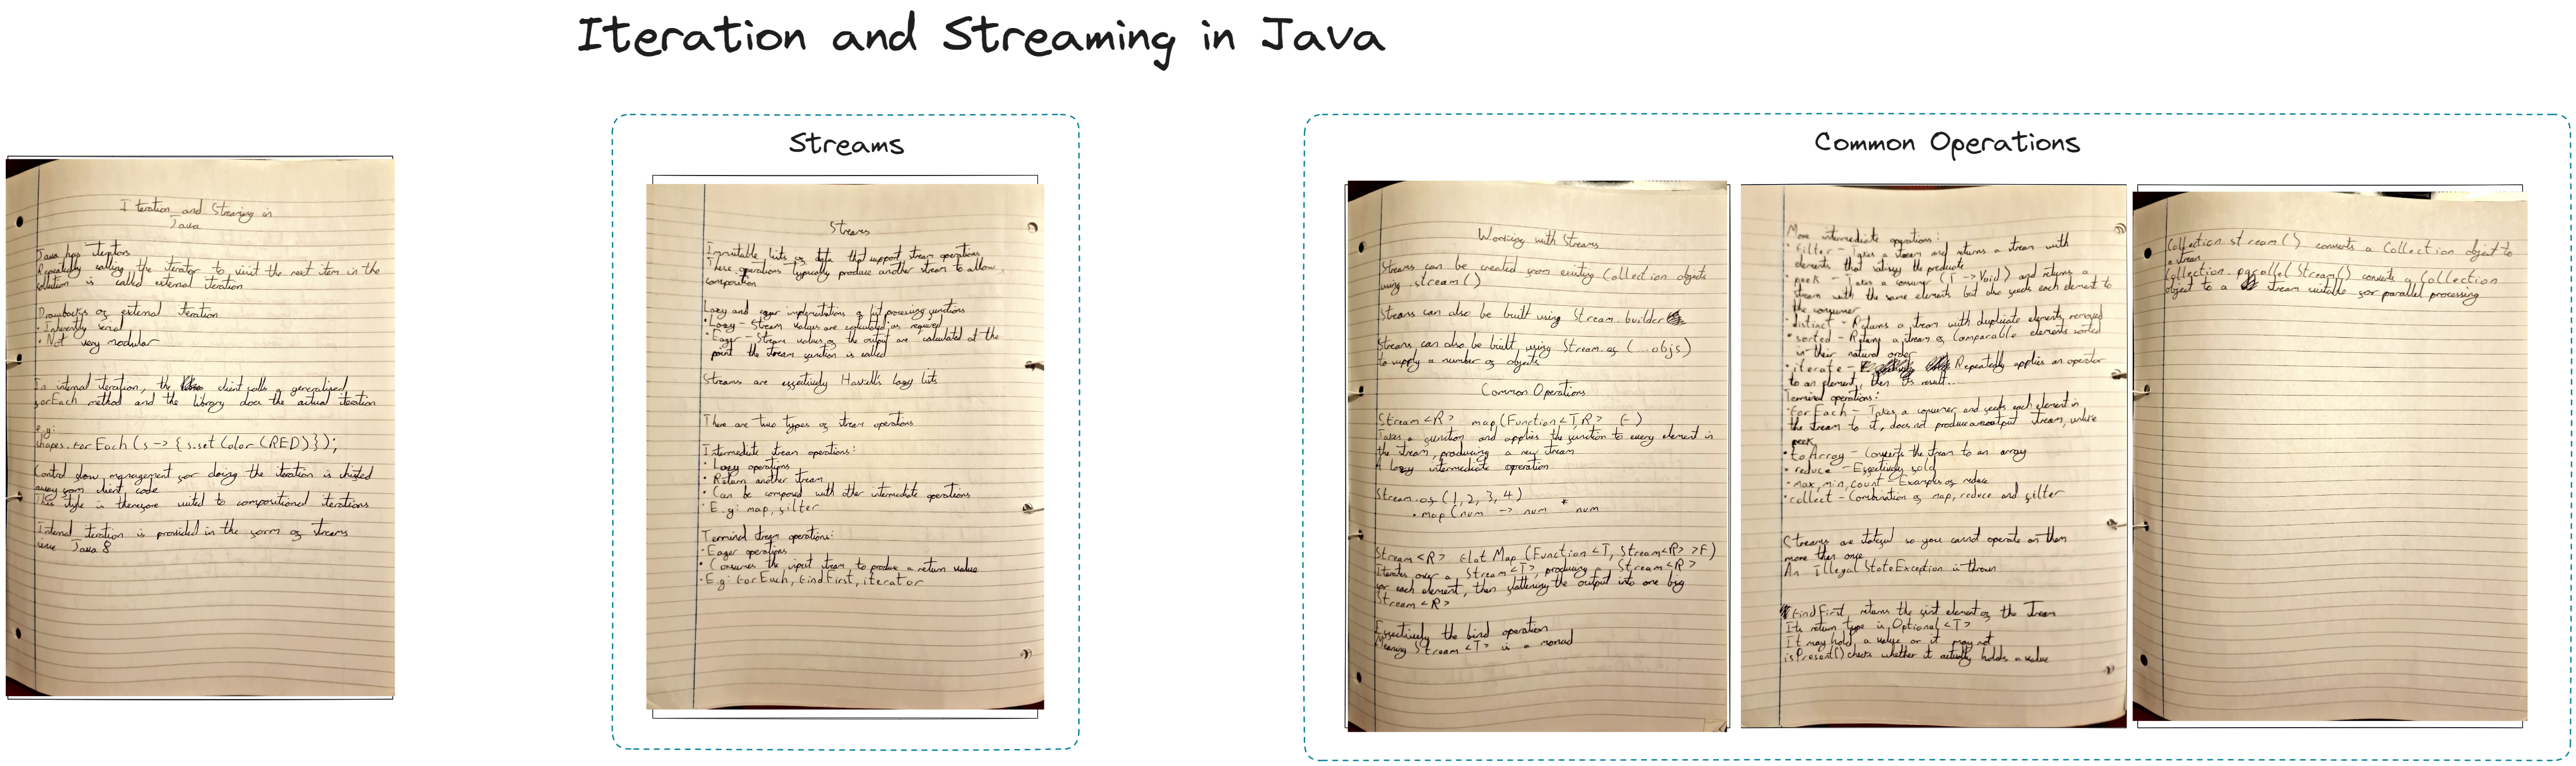 Iteration and Streaming in Java
Iteration and Streaming in
Java
Java has iterators
Repeatedly calling the iterator to visit the next item in the
collection is called external iteration
Drawbacks of external iteration
• Inherently serial
• Not very modular
In internal iteration, the client calls a generalised
forEach method and the library does the actual iteration
e.g:
shapes.forEach(s -> {s.setColor(RED)});
Control flow management for doing the iteration is shifted
away from client code
This style is therefore suited to compositional iterations
Internal iteration is provided in the form of streams
since Java 8
Streams
Streams
Immutable lists of data that support stream operations
These operations typically produce another stream to allow
composition
Lazy and eager implementations of list processing functions
• Lazy - Stream values are calculated as required
• Eager - Stream values of the output are calculated at the
point the stream function is called
Streams are effectively Haskell's lazy lists
There are two types of stream operations
Intermediate stream operations:
• Lazy operations
• Return another stream
• Can be composed with other intermediate operations
• E.g: map, filter
Terminal stream operations:
• Eager operations
• Consumes the input stream, to produce a return value
• E.g: forEach, findFirst, iterator
Common Operations
Working with Streams
Streams can be created from existing Collection objects
using .stream()
Streams can also be built using Stream.builder
Streams can also be built using Stream.of (...objs)
to supply a number of objects
Common Operations
Stream<R> map(Function<T,R> f)
Takes a function and applies the function to every element in
the stream, producing a new stream
A lazy intermediate operation
Stream.of(1, 2, 3, 4)
.map(num -> num * num
Stream<R> flatMap(Function<T, Stream<R>>F)
Iterates over a Stream<T>, producing a Stream<R>
for each element, then flattening the output into one big
Stream<R>
Effectively the bind operation
Meaning Stream<T> is a monad
More intermediate operations:
• filter - Takes a stream and returns a stream with
elements that satisfy the predicate
• peek - Takes a consumer (T -> Void) and returns a
stream with the same elements but also feeds each element to
the consumer
• distinct - Returns a stream with duplicate elements removed
• sorted - Returns a stream of Comparable elements sorted
in their natural order
• iterate - Repeatedly applies an operator
to an element, then its result...
Terminal operations:
• forEach - Takes a consumer and feeds each element in
the stream to it, does not produce an output stream, unlike
peek
• toArray - Converts the stream to an array
• reduce - Effectively fold
• max, min, count - Examples of reduce
• collect - Combination of map, reduce and filter
Streams are stateful so you cannot operate on them
more than once
An IllegalStateException is thrown
findFirst returns the first element of the stream
Its return type is Optional<T>
It may hold a value or it may not
isPresent() checks whether it actually holds a value
Collection.stream() converts a Collection object to
a stream
Collection.parallelStream() converts a Collection
object to a stream suitable for parallel processing